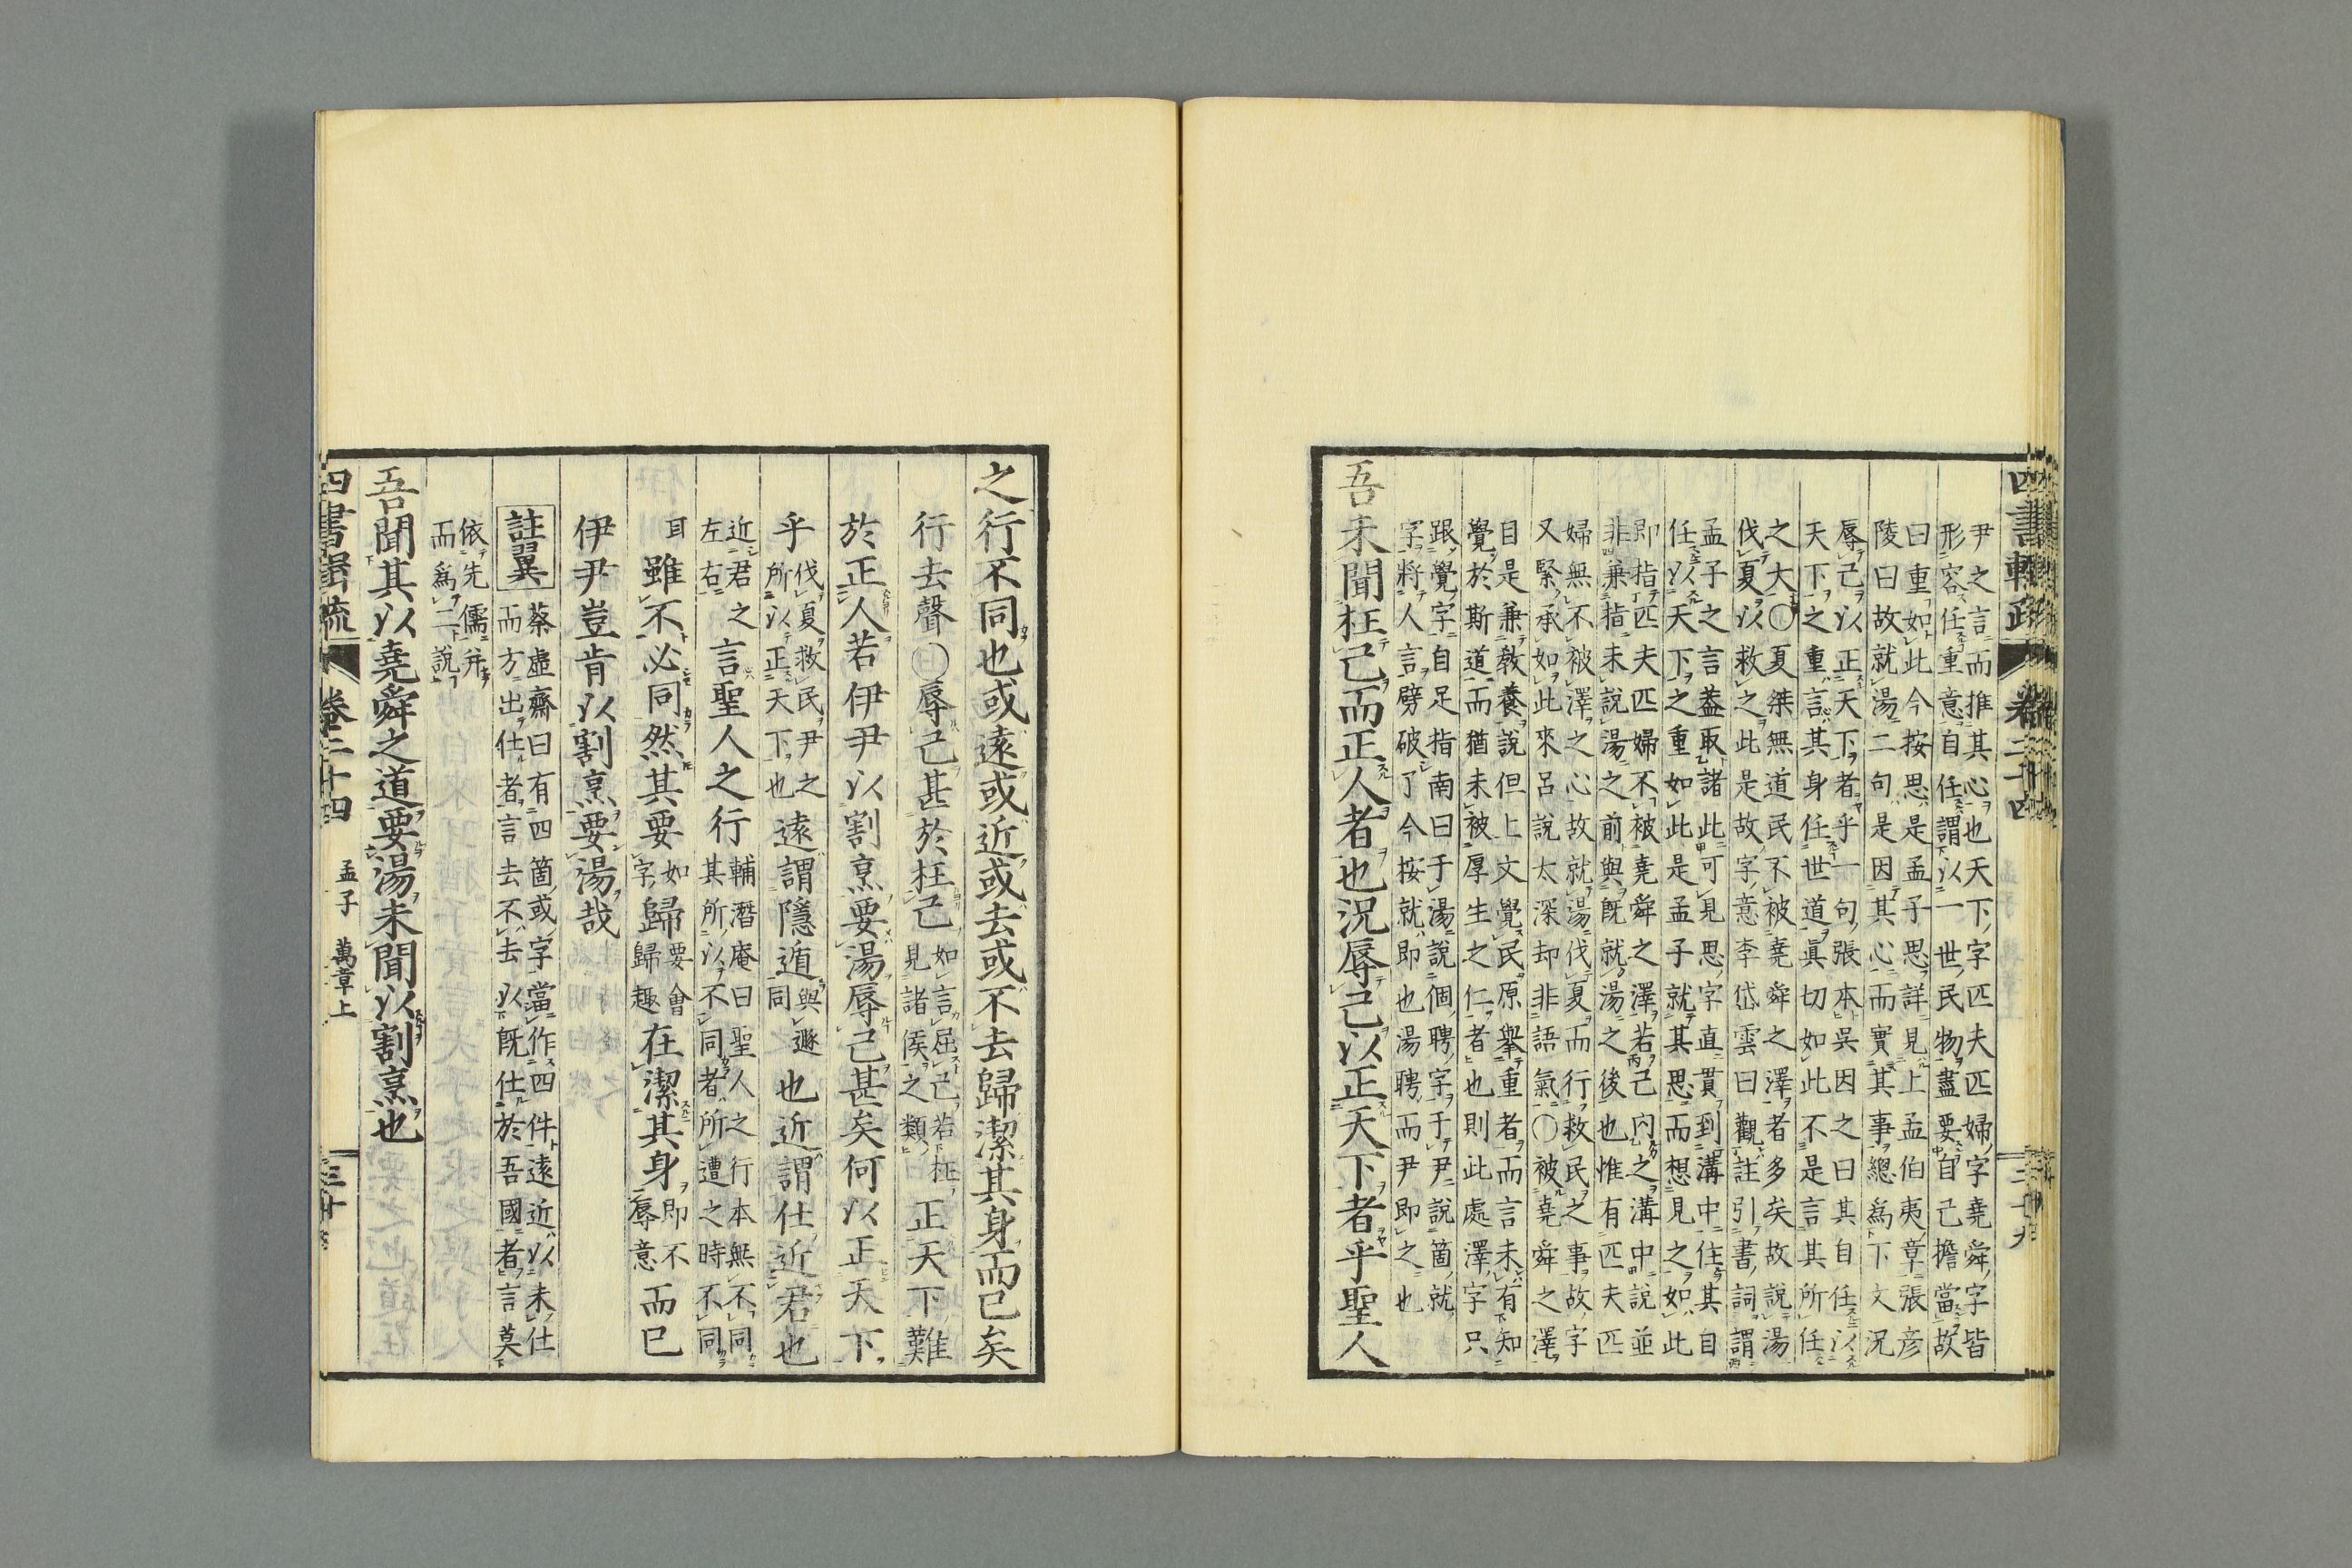 四書輯疏 卷二十四 二十九
尹之言而推其心也天下字匹夫匹婦字堯舜字皆
形容任重意自任謂以一世民物盡要自己擔當故
曰重如此今按思是孟子思詳見上孟伯夷章張彦
陵曰故就湯二句是因其心而實其事總爲下文況
辱己以正天下者乎一句張本吳因之曰其自任以
天下之重言其身任世道眞切如此不是言其所任
之大〇夏桀無道民不被堯舜之澤者多矣故說湯
伐夏以救之此是故字意李岱雲曰觀註引書詞謂
孟子之言蓋取諸此可見思字直貫到溝中住其自
任以天下之重如此是孟子就其思而想見之如此
即指匹夫匹婦不被堯舜之澤若己内之溝中說並
非兼指未說湯之前與旣就湯之後也惟有匹夫匹
婦無不被澤之心故就湯伐夏而行救民之事故字
又緊承如此來呂說太深却非語氣〇被堯舜之澤
目是兼敎養說但上文覺民原舉重者而言未有知
覺於斯道而猶未被厚生之仁者也則此處澤字只
跟覺字自足指南曰于湯說個聘字于尹說箇就
字將人言劈破了今按就即也湯聘而尹即之也
吾未聞枉己而正人者也況辱己以正天下者乎聖人
之行不同也或遠或近或去或不去歸潔其身而已矣
行去聲〇辱己甚於枉己如言屈己若枉見諸侯之類正天下難
於正人若伊尹以割烹要湯辱己甚矣何以正天下
乎伐夏救民尹之所以正天下也遠謂隱遁與遯同也近謂仕近君也
近君之左右言聖人之行輔潛庵曰聖人之行本無不同其所以不同者所遭之時不同
耳雖不必同然其要如字歸要會歸趣在潔其身即不辱意而已
伊尹豈肯以割烹要湯哉
註翼 蔡虛齋曰有四箇或字當作四件遠近以未仕
而方出仕者言去不去以旣仕於吾國者言莫
依先儒并
而爲二說
吾聞其以堯舜之道要湯未聞以割烹也
四書輯疏 卷二十四 孟子 萬章上 三十